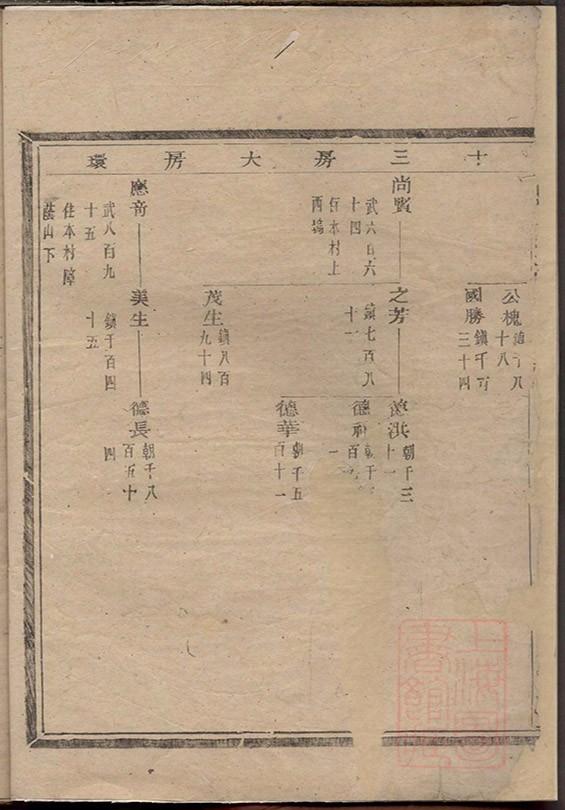 十三房大房環
公槐
十八
國勝
鎮千百
三十四
尚賢
武六百六
十四
住本村上
西塢
之芳
鎮七百八
十一
德洪
朝千三
十一
德
德華
朝千五
百十一
茂生
鎮八百
九十四
應奇
武八百九
十五
住本村障
蔭山下
美生
鎮千百四
十五
德長
朝千八
百五十
四
上海圖書館藏